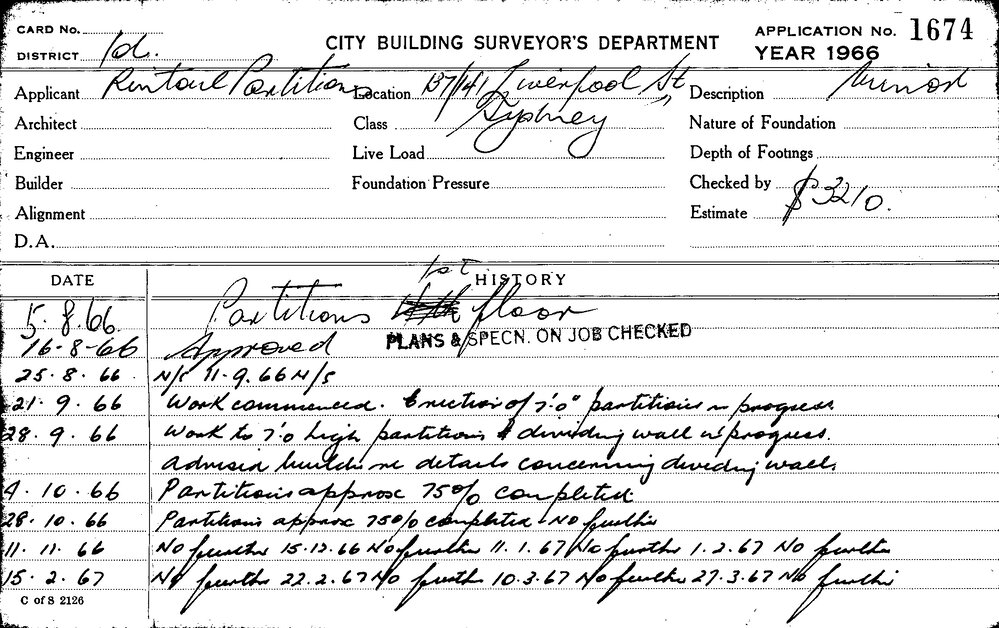 CARD No.
DISTRICT
CITY BUILDING SURVEYOR'S DEPARTMENT
APPLICATION No. 1674
YEAR 1966
Applicant Partitions
Location 137/141 Liverpool St
Sydney
Description Minor
Architect
Class
Nature of Foundation
Engineer
Live Load
Depth of Footings
Builder
Foundation Pressure
Checked by
Alignment
Estimate $3210.
D.A.
DATE
HISTORY
1st
5.8.66. Partitions floor
PLANS & SPECN. ON JOB CHECKED
16-8-66 Approved
25.8.66 N/S 11.9.66 N/S
21.9.66 Work commenced. Erection of 7'.0" partitions in progress
28.9.66 Work to 7'.0 high partitions & dividing wall in progress.
Advised builder re details concerning dividing wall.
4.10.66 Partitions approx 75% completed
28.10.66 Partitions approx 75% completed No further
11.11.66 No further 15.12.66 No further 11.1.67 No further 1.2.67 No further
15.2.67 No further 22.2.67 No further 10.3.67 No further 27.3.67 No further
C of S 2126